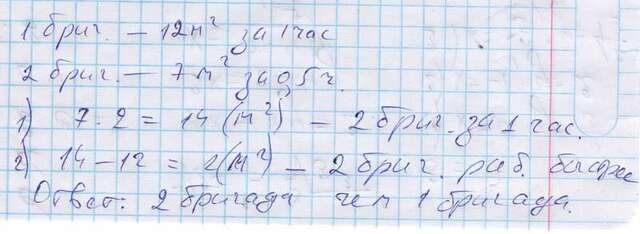 1 бриг. – 12 м² за 1 час
2 бриг. – 7 м² за 0,5 ч.
1) 7 · 2 = 14 (м²) – 2 бриг. за 1 час.
2) 14 – 12 = 2 (м²) – 2 бриг. раб. быстрее
Ответ: 2 бригада чем 1 бригада.